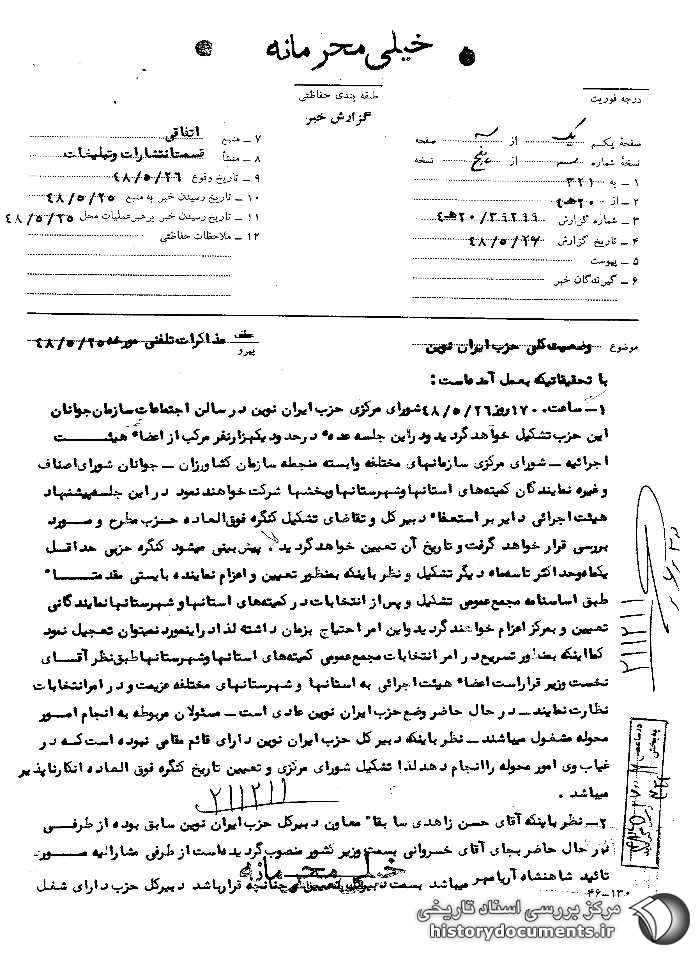 خیلی محرمانه
طبقه بندی حفاظتی
گزارش خبر
درجه فوریت
صفحهٔ یکم یک از سه صفحه
نسخهٔ شماره سه از پنج نسخه
۱ – به ۳۲۱
۲ – از ۲۰هـ۴
۳ – شماره گزارش ۲۰/۳۹۲۹۹هـ۴
۴ – تاریخ گزارش ۴۸/۵/۲۷
۵ – پیوست
۶ – گیرندگان خبر
۷ – منبع اتفاقی
۸ – منشأ قسمت انتشارات و تبلیغات
۹ – تاریخ وقوع ۴۸/۵/۲۶
۱۰ – تاریخ رسیدن خبر به منبع ۴۸/۵/۲۵
۱۱ – تاریخ رسیدن خبر برهبر عملیات محل ۴۸/۵/۲۵
۱۲ – ملاحظات حفاظتی
موضوع وضعیت کلی حزب ایران نوین
عطف
پیرو مذاکرات تلفنی مورخه ۴۸/۵/۲۵
با تحقیقاتیکه بعمل آمده است :
۱- ساعت ۱۷۰۰ روز ۴۸/۵/۲۶ شورای مرکزی حزب ایران نوین در سالن اجتماعات سازمان جوانان
این حزب تشکیل خواهد گردید و در این جلسه عده‌ء در حدود یکهزار نفر مرکب از اعضاء هیئت
اجرائیه – شورای مرکزی سازمانهای مختلفه وابسته منجمله سازمان کشاورزان – جوانان شورای اصناف
و غیره نمایندگان کمیته‌های استانها و شهرستانها و بخشها شرکت خواهند نمود در این جلسه پیشنهاد
هیئت اجرائی دایر بر استعفاء دبیر کل و تقاضای تشکیل کنگره فوق‌العاده حزب مطرح و مورد
بررسی قرار خواهد گرفت و تاریخ آن تعیین خواهد گردید . پیش بینی میشود کنگره حزبی حداقل
یکماه و حداکثر تا سه‌ماه دیگر تشکیل و نظر باینکه بمنظور تعیین و اعزام نماینده بایستی مقدمتاً
طبق اساسنامه مجمع عمومی تشکیل و پس از انتخابات در کمیته‌های استانها و شهرستانها نمایندگانی
تعیین و بمرکز اعزام خواهند گردید و این امر احتیاج بزمان داشته لذا در اینمورد نمیتوان تعجیل نمود
کما اینکه بمنظور تسریع در امر انتخابات مجمع عمومی کمیته‌های استانها و شهرستانها طبق نظر آقای
نخست وزیر قرار است اعضاء هیئت اجرائی به استانها و شهرستانهای مختلفه عزیمت و در امر انتخابات
نظارت نمایند – در حال حاضر وضع حزب ایران نوین عادی است – مسئولان مربوطه به انجام امور
محوله مشغول میباشند – نظر باینکه دبیر کل حزب ایران نوین دارای قائم مقامی نبوده است که در
غیاب وی امور محوله را انجام دهد لذا تشکیل شورای مرکزی و تعیین تاریخ کنگره فوق العاده انکار ناپذیر
میباشد .
۲۱۱۲۱۱
۲- نظر باینکه آقای حسن زاهدی سابقاً معاون دبیر کل حزب ایران نوین سابق بوده از طرفی
در حال حاضر بجای آقای خسروانی بسمت وزیر کشور منصوب گردیده است از طرفی مشارالیه مورد
تائید شاهنشاه آریامهر میباشد بسمت دبیر کل تعیین چنانچه قرار باشد دبیر کل حزب دارای شغل
خیلی محرمانه
۱۳۰–۴۶
۲۱۱۲۱۱
مرکز بررسی اسناد تاریخی
historydocuments.ir